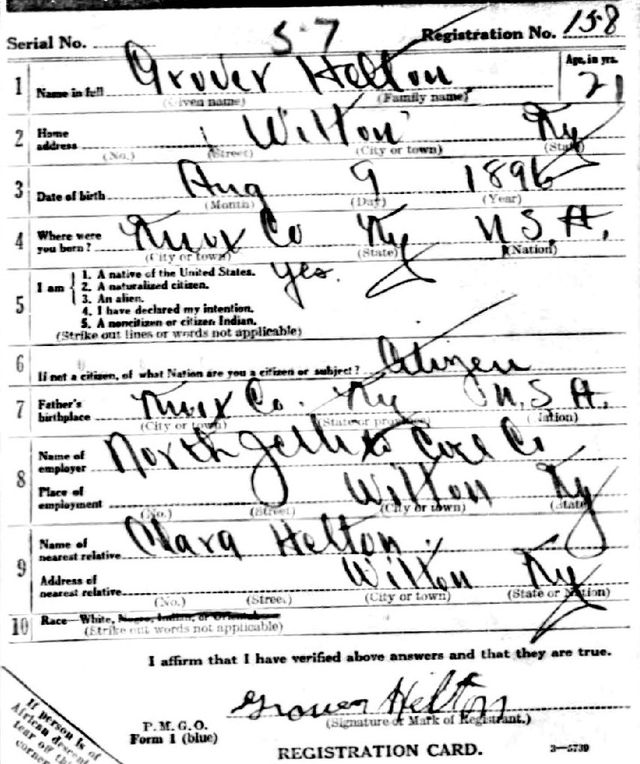 Serial No. 57 Registration No. 158
1 Name in full Grover Helton Age, in yrs. 21
(Given name) (Family name)
2 Home address Wilton Ky
(No.) (Street) (City or town) (State)
3 Date of birth Aug 9 1896
(Month) (Day) (Year)
4 Where were you born? Knox Co Ky U.S.A.
(City or town) (State) (Nation)
5 I am 1. A native of the United States. yes.
2. A naturalized citizen.
3. An alien.
4. I have declared my intention.
5. A noncitizen or citizen Indian.
(Strike out lines or words not applicable)
6 If not a citizen, of what Nation are you a citizen or subject? Citizen
7 Father's birthplace Knox Co. Ky U.S.A.
(City or town) (State or province) (Nation)
8 Name of employer North Jellico Coal Co
Place of employment Wilton Ky
(No.) (Street) (City or town) (State)
9 Name of nearest relative Clara Helton.
Address of nearest relative Wilton Ky
(No.) (Street) (City or town) (State or Nation)
10 Race—White, Negro, Indian, or Oriental
(Strike out words not applicable)
I affirm that I have verified above answers and that they are true.
Grover Helton
P.M.G.O. (Signature or Mark of Registrant.)
Form 1 (blue)
REGISTRATION CARD. 3—5739
If person is of
African descent
tear off th
corner